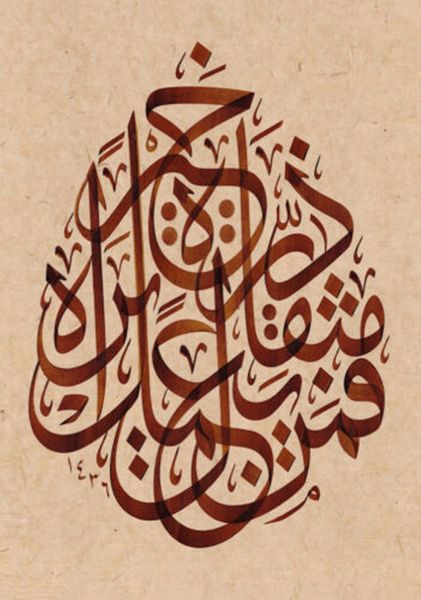 فمن يعمل مثقال ذرة خيرا يره
١٤٣٦